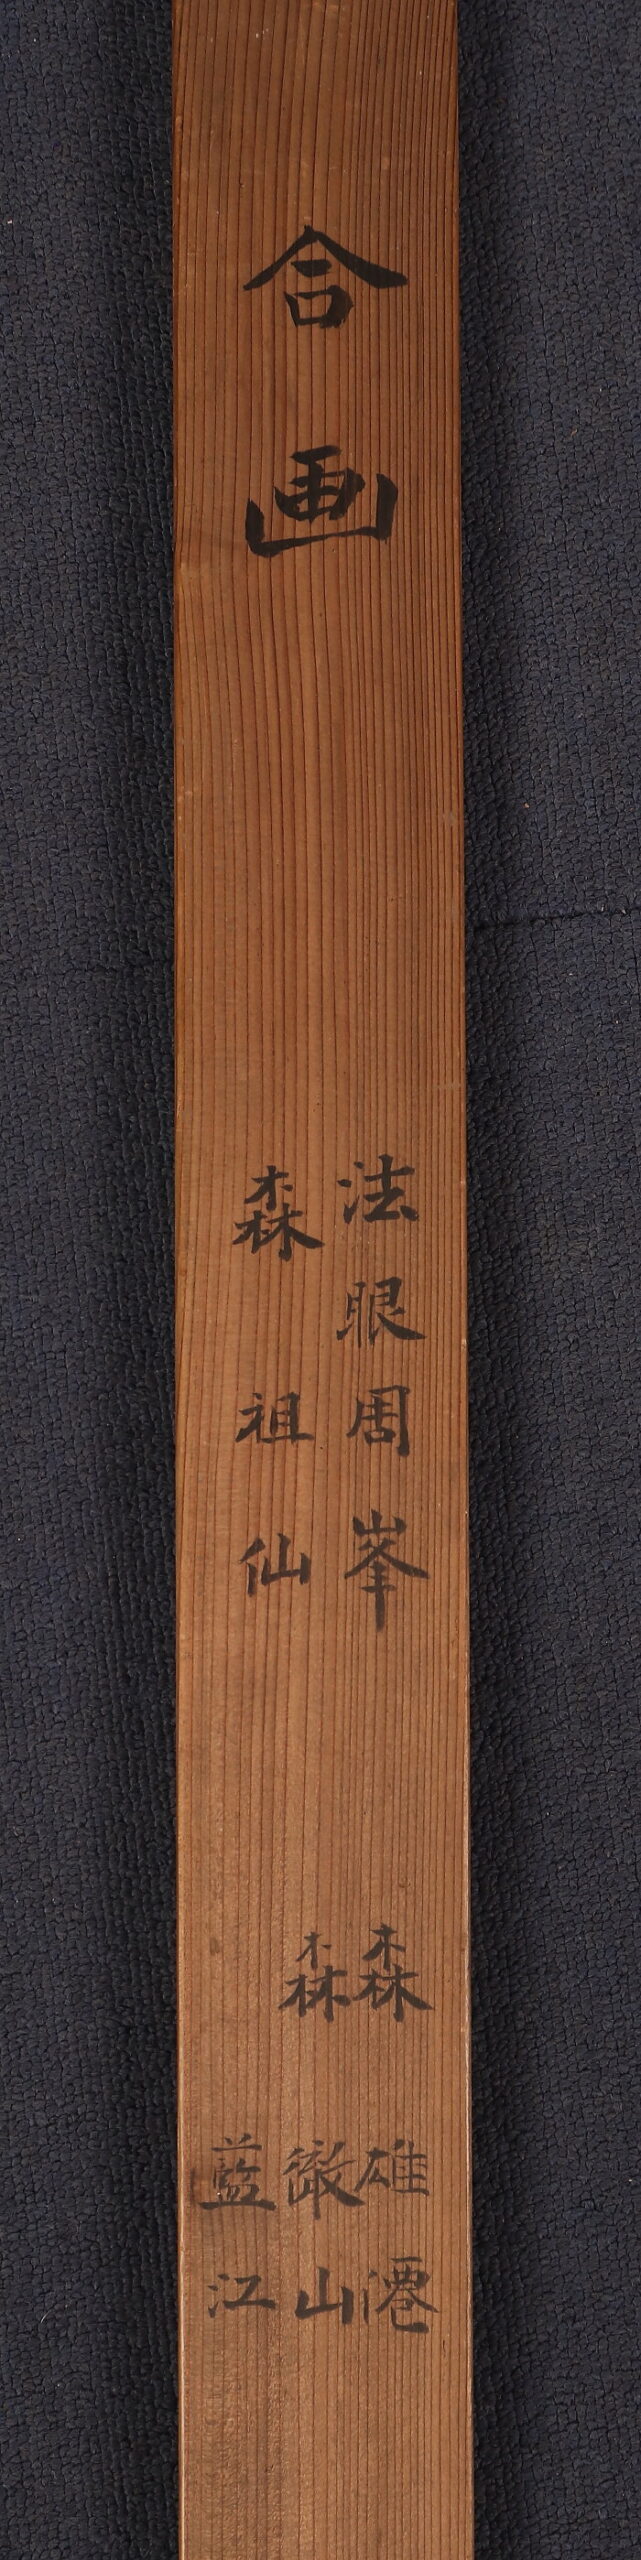 合画
法眼周峯
森祖仙
森雄僊
森徹山
藍江